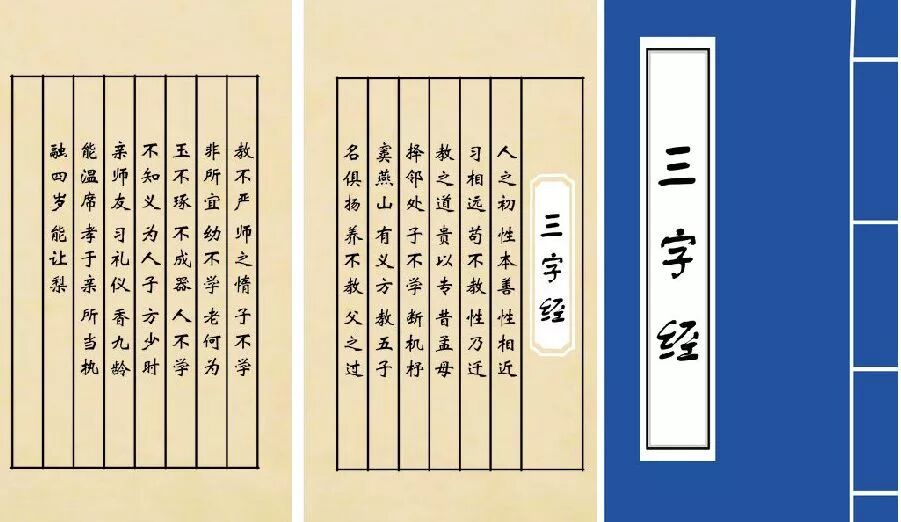 三字经
三字经
人之初 性本善 性相近
习相远 苟不教 性乃迁
教之道 贵以专 昔孟母
择邻处 子不学 断机杼
窦燕山 有义方 教五子
名俱扬 养不教 父之过
教不严 师之惰 子不学
非所宜 幼不学 老何为
玉不琢 不成器 人不学
不知义 为人子 方少时
亲师友 习礼仪 香九龄
能温席 孝于亲 所当执
融四岁 能让梨